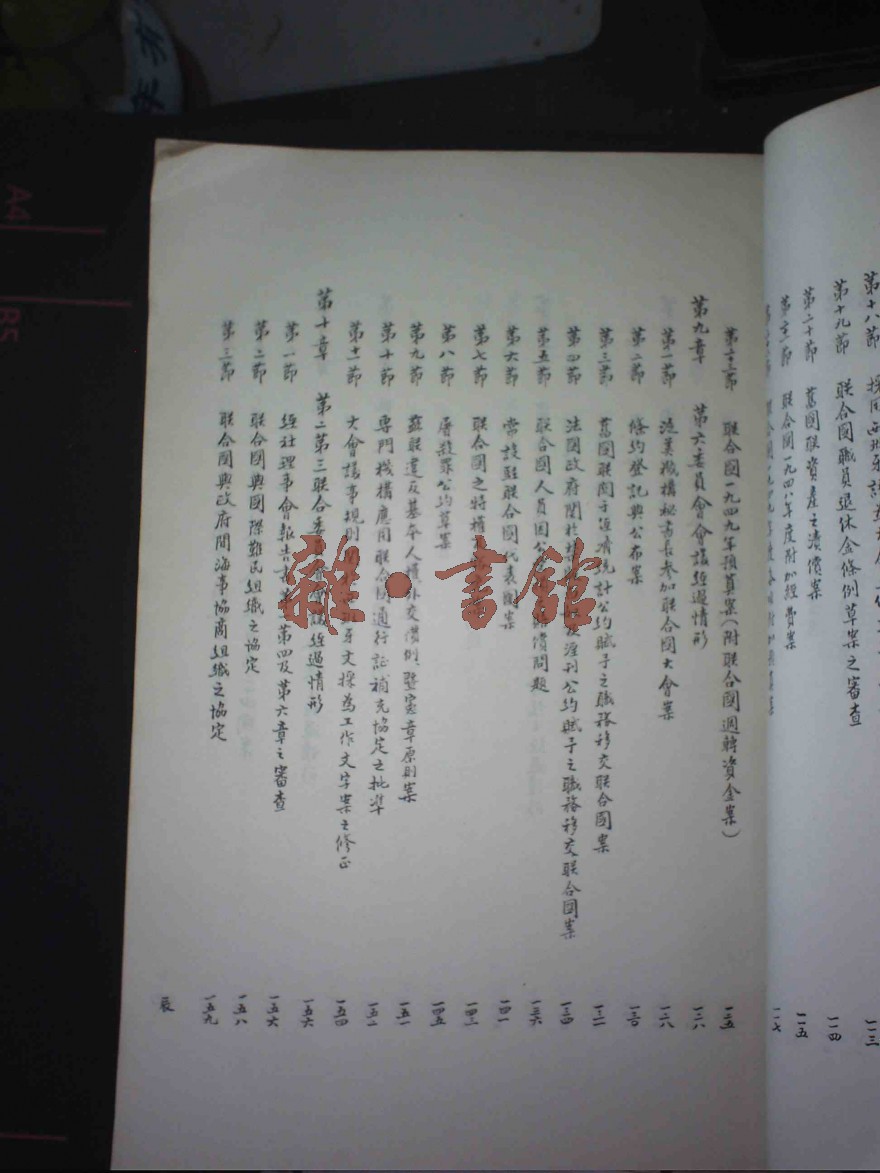 第十八節 採用西班牙語
第十九節 聯合國職員退休金條例草案之審查 一一四
第二十節 舊國聯資產之清償案 一一五
聯合國一九四八年度附加經費案 一一七
聯合國一九四九年預算案(附聯合國週轉資金案) 一二五
第九章 第六委員會會議經過情形 一二八
第一節 泛美機構秘書長參加聯合國大會案 一二八
第二節 條約登記與公布案 一三〇
第三節 舊國聯關于經濟統計公約賦予之職務移交聯合國案 一三二
第四節 法國政府關於 淫刊公約賦予之職務移交聯合國案 一三四
第五節 聯合國人員因公 償問題 一三六
第六節 常設駐聯合國代表團案 一四一
第七節 聯合國之特權 一四三
第八節 屠殺罪公約草案 一四五
第九節 蘇聯違反基本人權外交慣例暨憲章原則案 一五一
第十節 專門機構應用聯合國通行証補充協定之批準 一五二
第十一節 大會議事規則 牙文採為工作文字案之修正 一五四
第十章 第二第三聯合委員會會議經過情形 一五六
第一節 經社理事會報告書 第四及第六章之審查 一五六
第二節 聯合國與國際難民組織之協定 一五八
第三節 聯合國與政府間海事協商組織之協定 一五九
辰
雜·書館
A4
B5